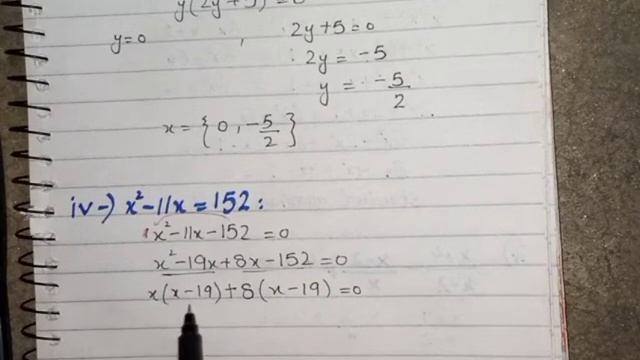 y(2y+5)=0
y=0 , 2y+5=0
2y = -5
y = -5/2
x = {0, -5/2}
iv-) x²-11x=152:
1x²-11x-152=0
x²-19x+8x-152=0
x(x-19)+8(x-19)=0